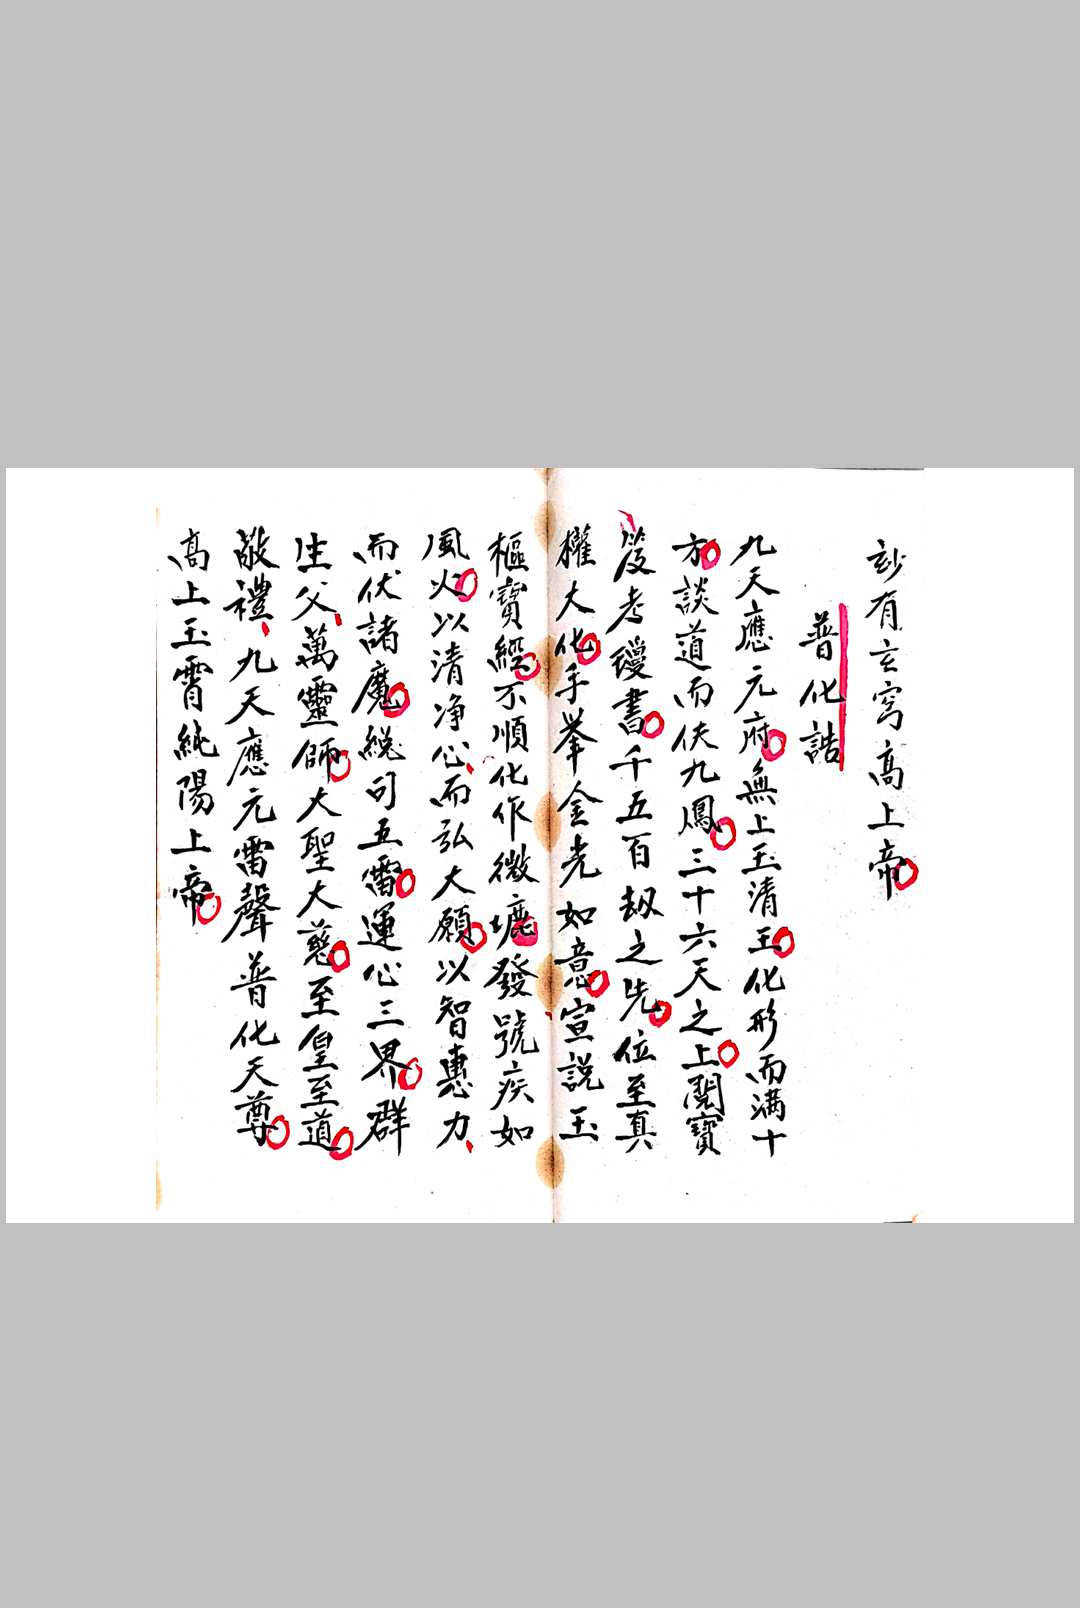 玅有玄穹高上帝
普化誥
九天應元府無上玉清王化形而滿十
方談道而伏九鳳三十六天之上閱寶
笈考瓊書千五百劫之先位至真
權大化手举金光如意宣説玉
樞寶經不順化作微塵發號疾如
風火以清净心而弘大願以智惠力
而伏諸魔總司五雷運心三界群
生父萬靈師大聖大慈至皇至道
敬禮九天應元雷聲普化天尊
高上玉霄純陽上帝